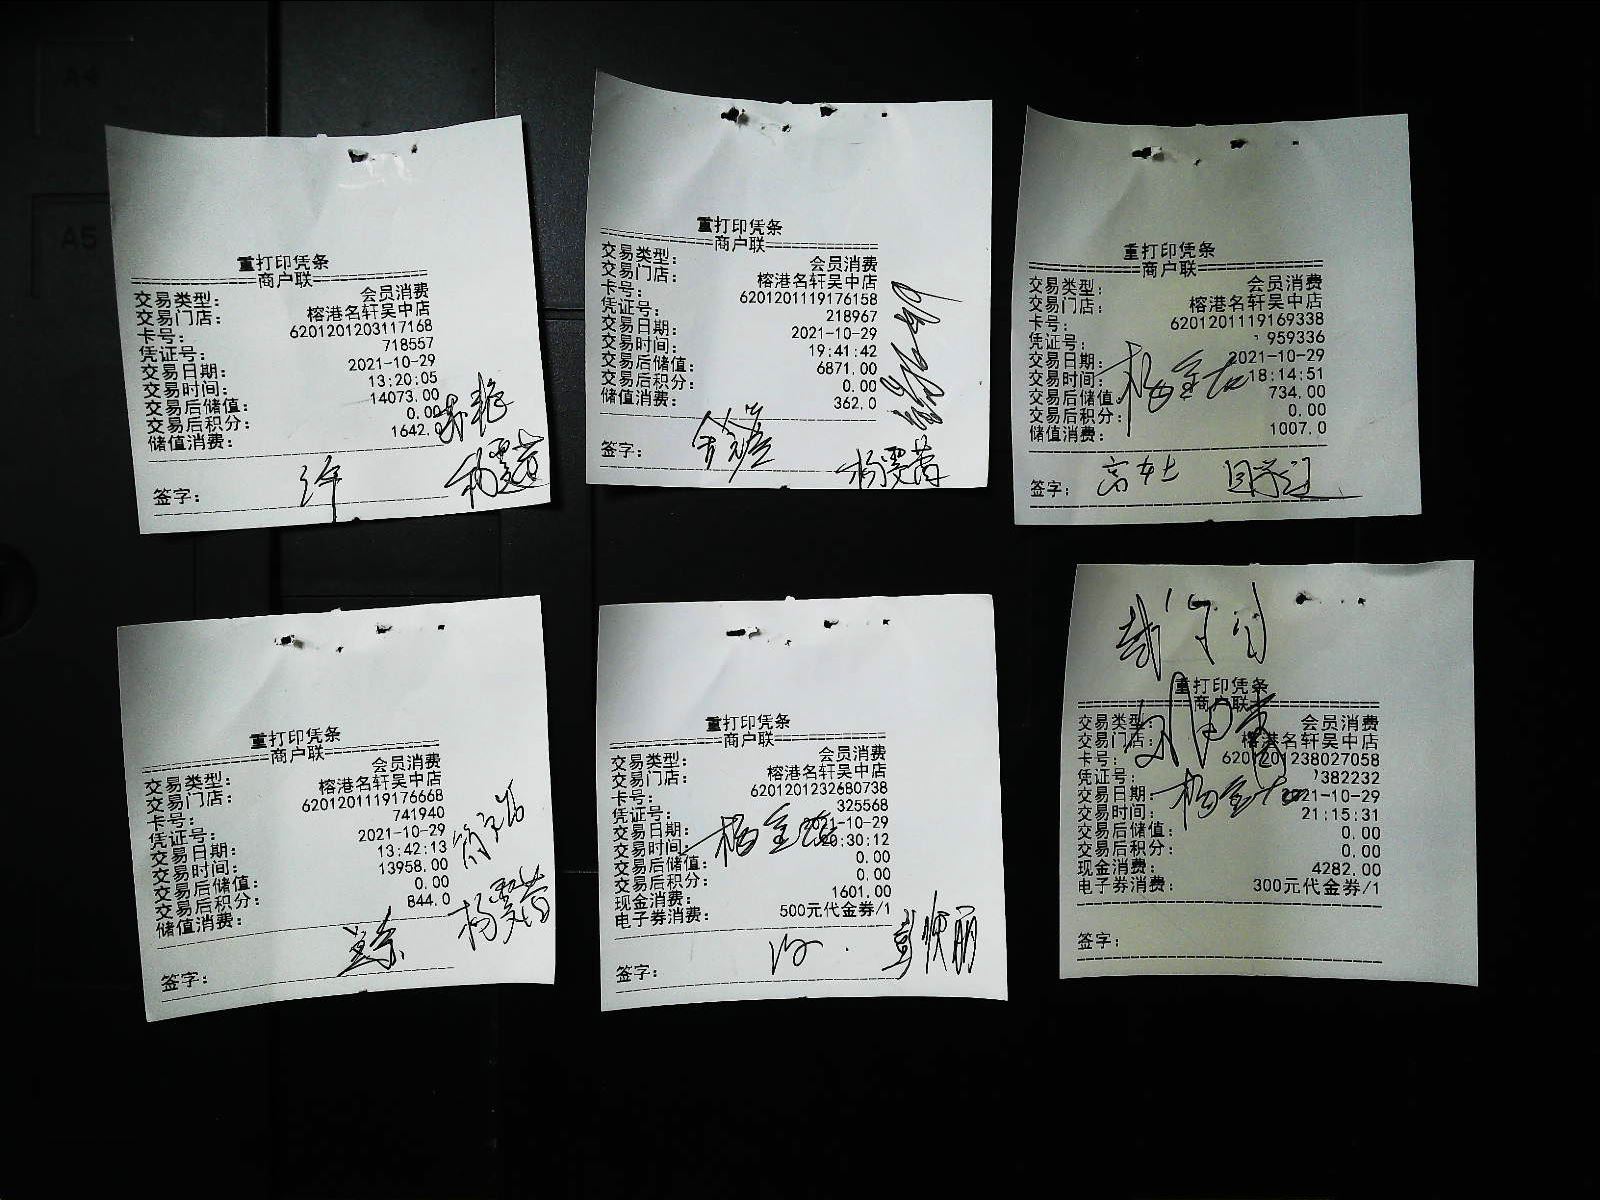 重打印凭条
商户联
交易类型： 会员消费
交易门店： 榕港名轩吴中店
卡号： 6201201203117168
凭证号： 718557
交易日期： 2021-10-29
交易时间： 13:20:05
交易后储值： 14073.00
交易后积分： 0.00
储值消费： 1642.0
签字： 许
杨翠蓉
重打印凭条
商户联
交易类型： 会员消费
交易门店： 榕港名轩吴中店
卡号： 6201201119176158
凭证号： 218967
交易日期： 2021-10-29
交易时间： 19:41:42
交易后储值： 6871.00
交易后积分： 0.00
储值消费： 362.0
签字：
杨翠蓉
重打印凭条
商户联
交易类型： 会员消费
交易门店： 榕港名轩吴中店
卡号： 6201201119169338
凭证号： 959336
交易日期： 2021-10-29
交易时间： 18:14:51
交易后储值： 734.00
交易后积分： 0.00
储值消费： 1007.0
签字： 高女士
重打印凭条
商户联
交易类型： 会员消费
交易门店： 榕港名轩吴中店
卡号： 6201201119176668
凭证号： 741940
交易日期： 2021-10-29
交易时间： 13:42:13
交易后储值： 13958.00
交易后积分： 0.00
储值消费： 844.0
签字：
杨翠蓉
重打印凭条
商户联
交易类型： 会员消费
交易门店： 榕港名轩吴中店
卡号： 6201201232680738
凭证号： 325568
交易日期： 2021-10-29
交易时间： 20:30:12
交易后储值： 0.00
交易后积分： 0.00
现金消费： 1601.00
电子券消费： 500元代金券/1
签字： 彭焕丽
重打印凭条
商户联
交易类型： 会员消费
交易门店： 榕港名轩吴中店
卡号： 6201201238027058
凭证号： 382232
交易日期： 2021-10-29
交易时间： 21:15:31
交易后储值： 0.00
交易后积分： 0.00
现金消费： 4282.00
电子券消费： 300元代金券/1
签字：